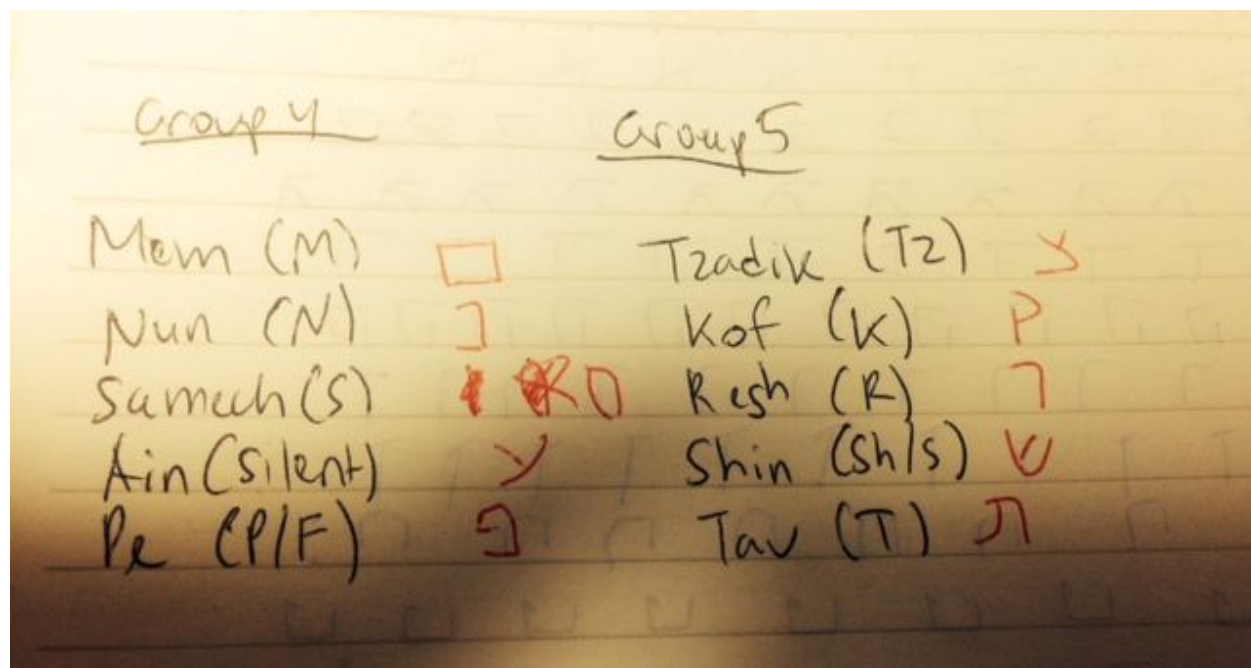 Group 4
Mem (M) ם
Nun (N) נ
Samech (S) ס
Ain (Silent) ע
Pe (P/F) פ
Group 5
Tzadik (Tz) צ
Kof (K) ק
Resh (R) ר
Shin (Sh/s) ש
Tav (T) ת